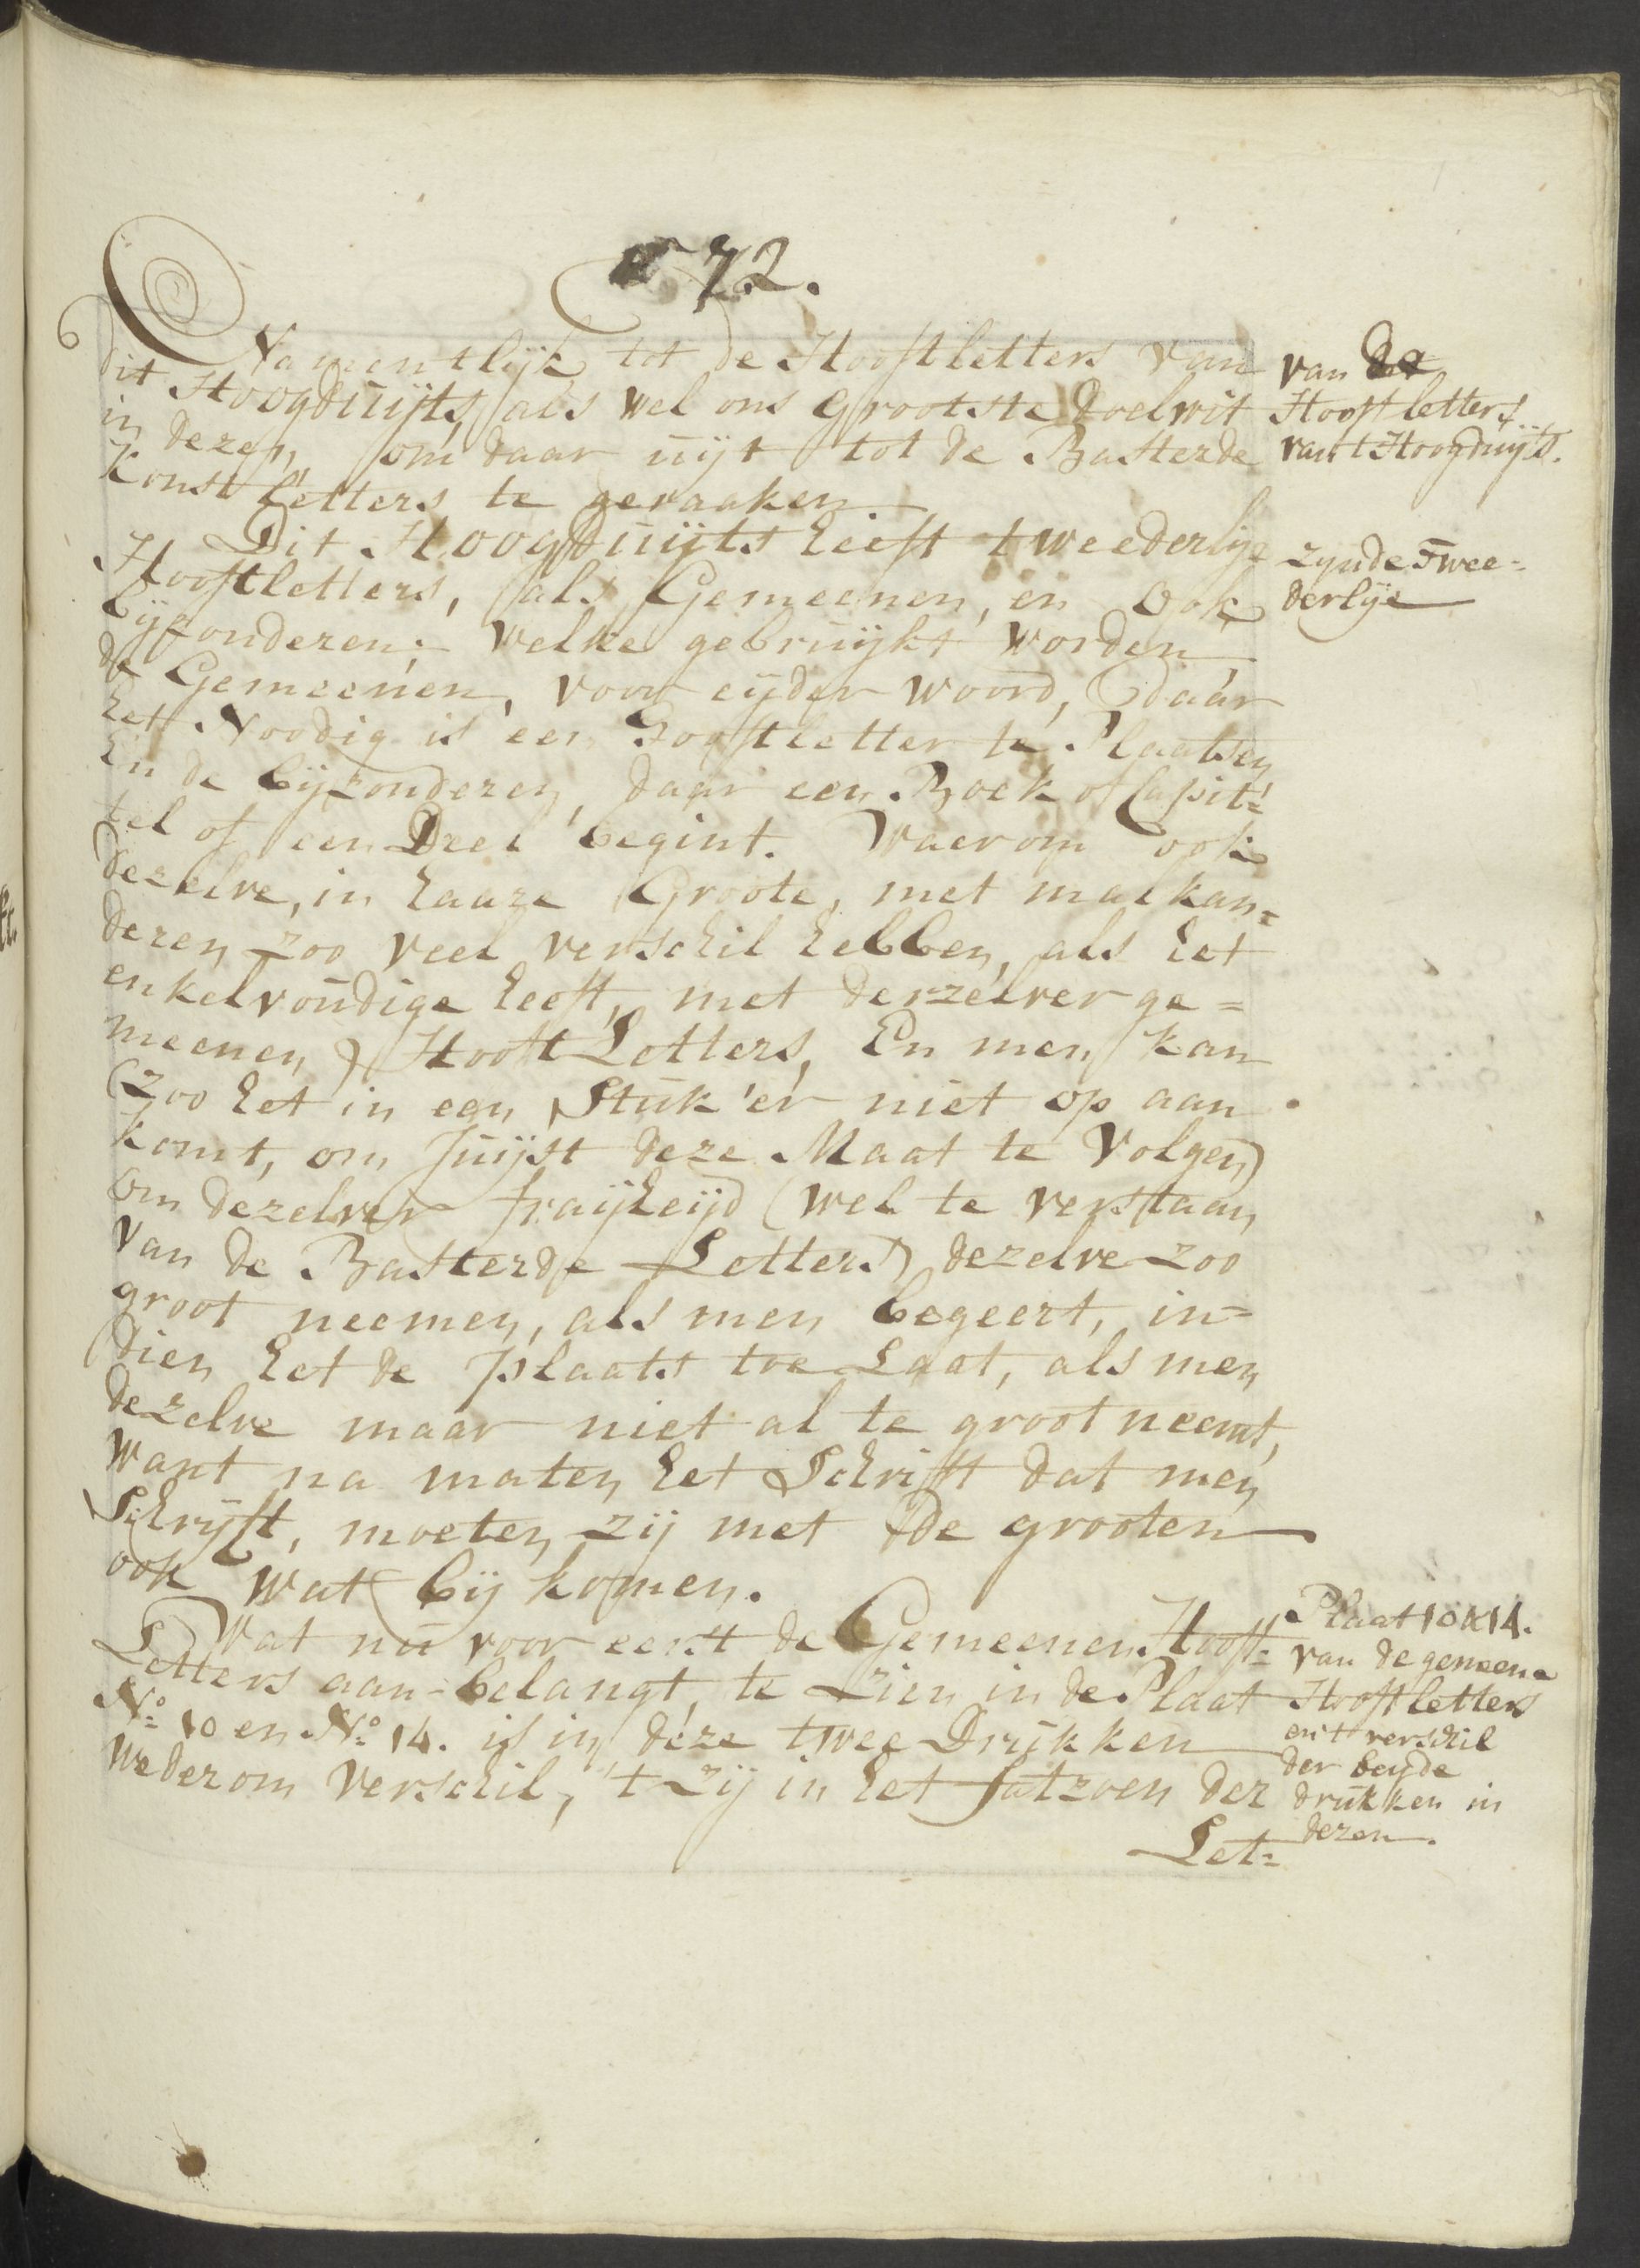 72.
Namentlijk tot de Hooftletters van
dit Hoogduijts, als wel ons Grootste doelwit
in dezen, om daar uijt tot de Basterde
konst letters te geraaken.
Dit Hoogduijts heeft tweederlije
Hooftletters, als Gemeenen, en Ook
bijzonderen; welke gebruijkt worden
de Gemeenen, voor eijder woord, daar
het Noodig is een Hooftletter te Plaatsen
En de bijzonderen, daar een Boek of Capit-
tel of een Deel begint. Waerom ook
dezelve, in haare Groote, met malkan=
deren zoo veel verschil hebben, als het
enkelvoudige heeft, met derzelver ge=
meenen Hooft Letters, En men kan
(zoo het in een Stuk 'er niet op aan
komt, om Juijst deze Maat te Volgen)
om dezelver fraijheijd (wel te verstaan
van de Basterde Letters) dezelve zoo
groot neemen, als men begeert, in=
dien het de plaats toe Laat, als men
dezelve maar niet al te groot neemt,
want na maten het Schrift dat men
Schrijft, moeten zij met de grooten
ook wat bij komen.
Wat nu voor eerst de Gemeenen Hooft=
Letters aan-belangt, te Zien in de Plaat
N.º 10 en N.º 14. is in déze twee Drukken
wederom verschil, 't zij in het fatzoen der
Let=
van de
Hooftletters
van t Hoogduijts.
zynde Twee=
derlije
Plaat 10 & 14.
van de gemeene
Hooftletters
en t verschil
der beyde
drukken in
dezen.